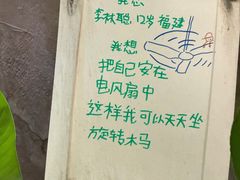 我想
李林聪 12岁 福建
我想
把自己安在
电风扇中
这样我可以天天坐
旋转木马